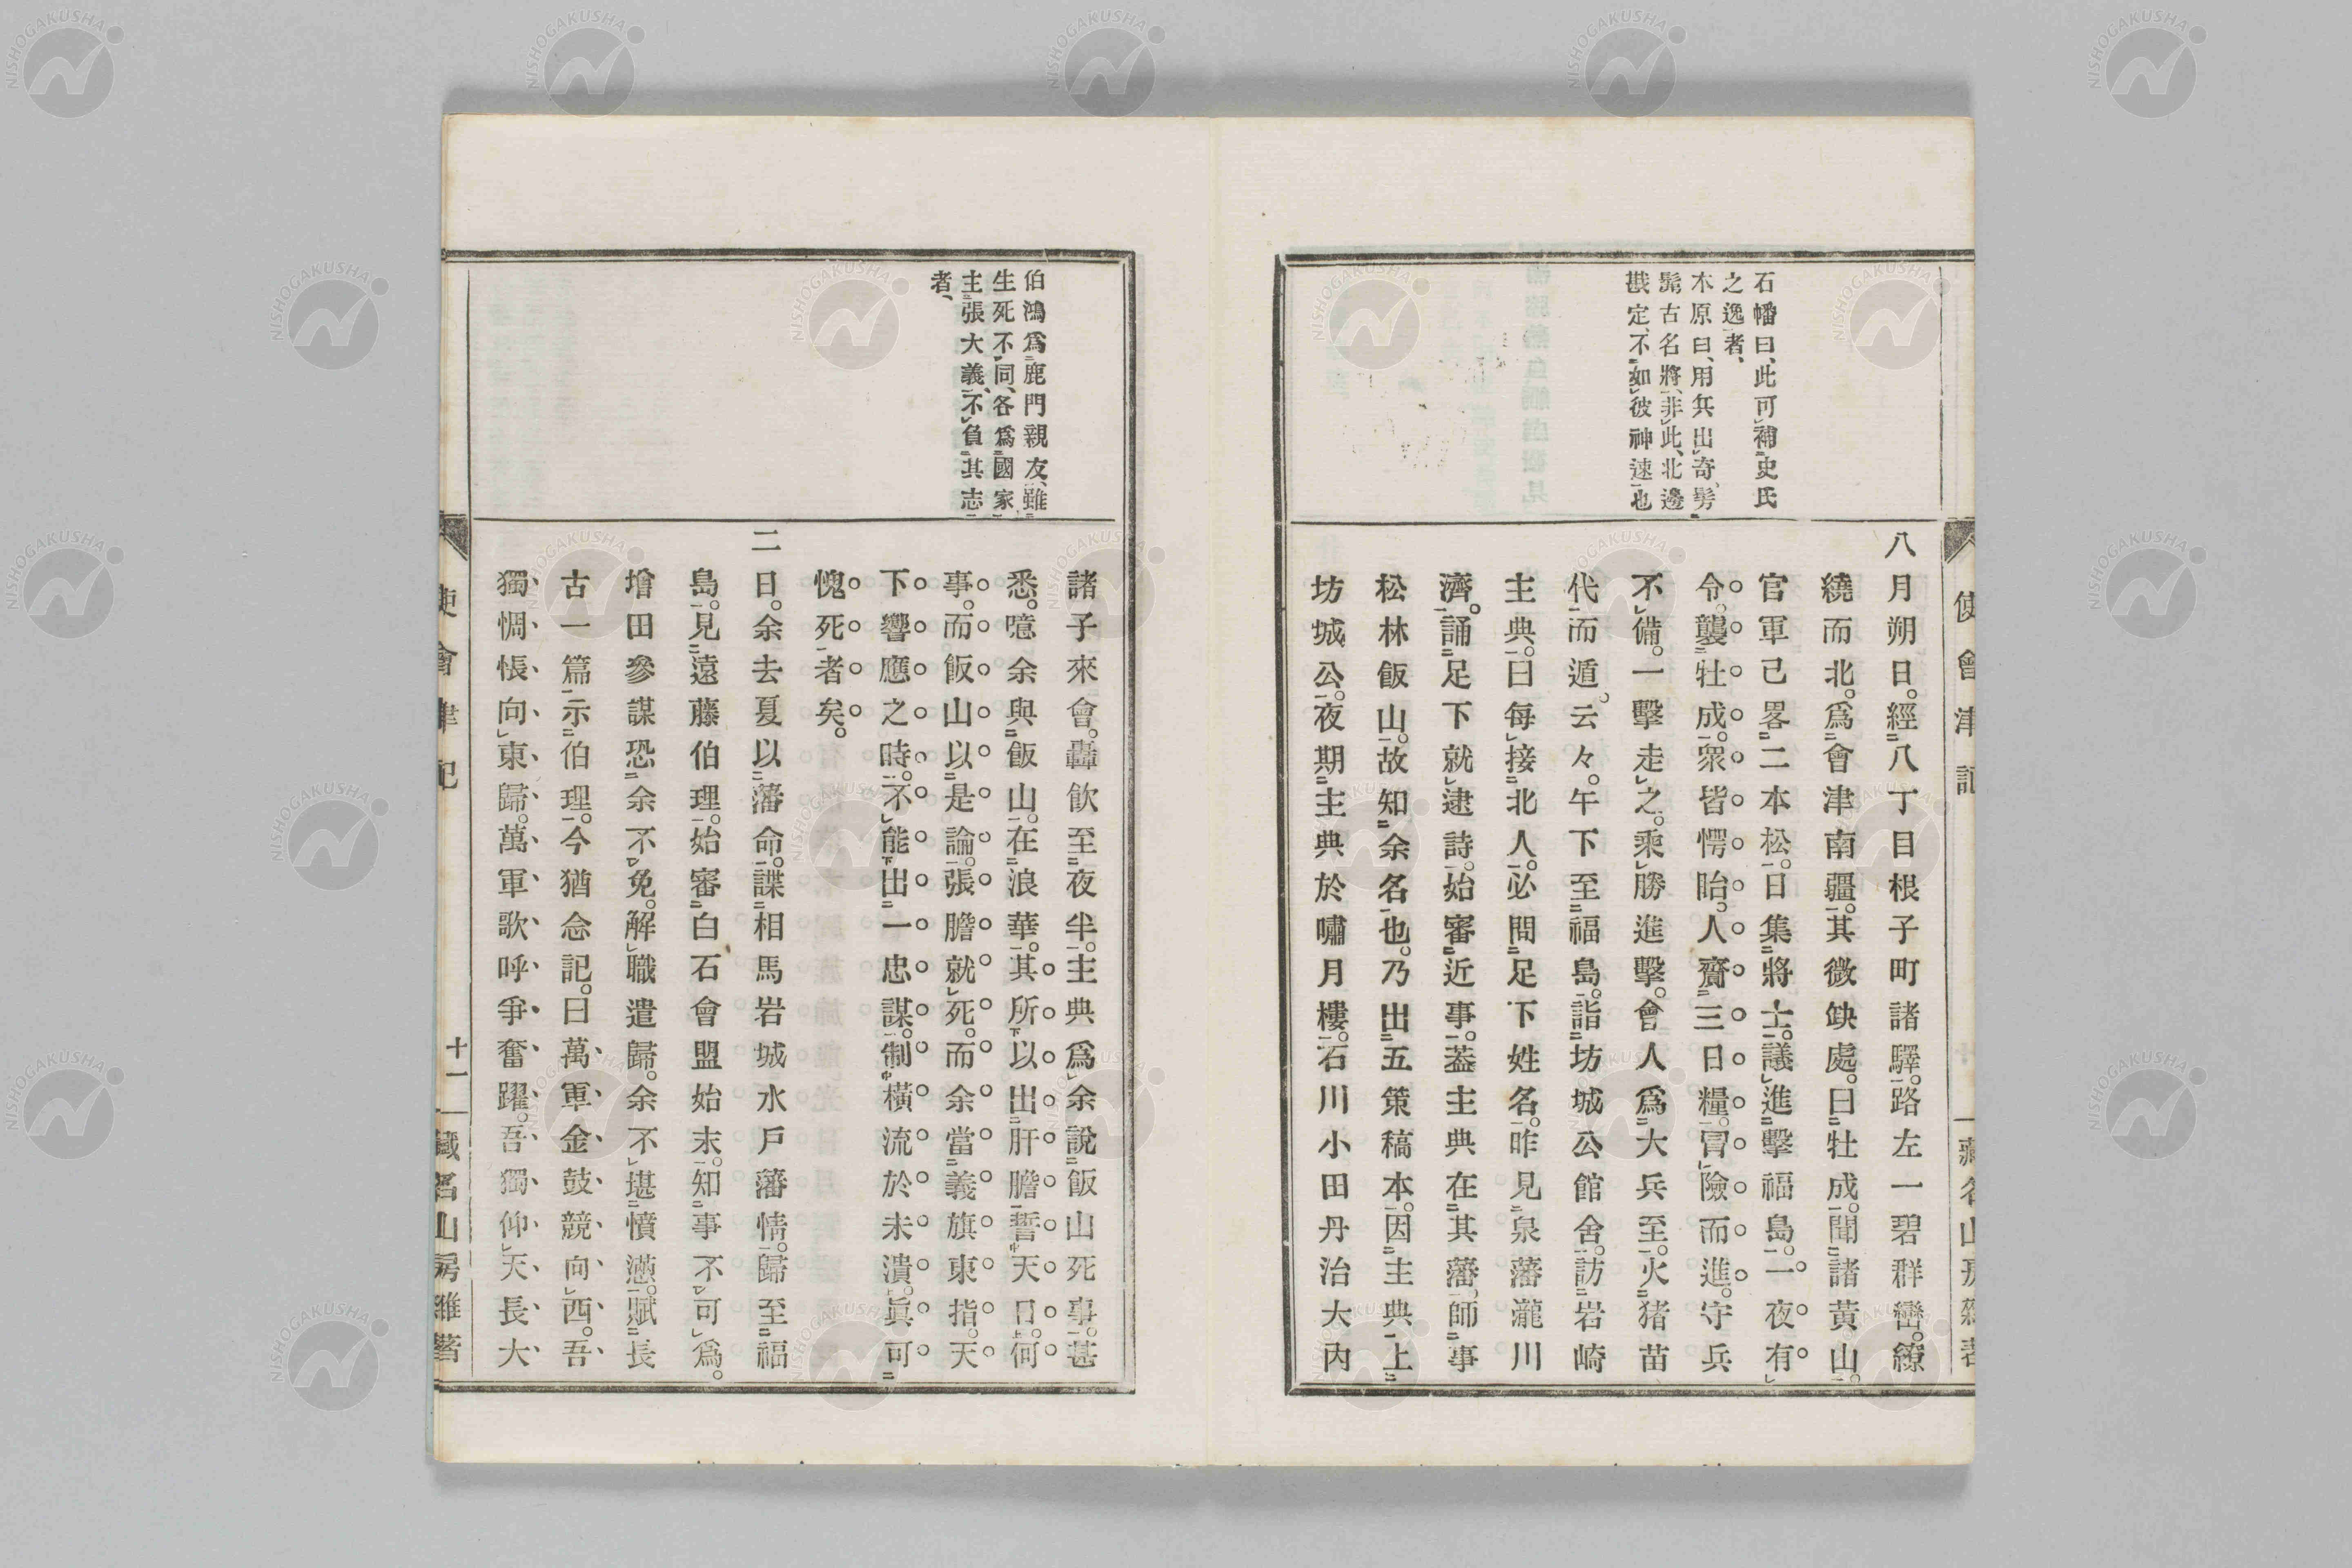 石幡曰、此可補史氏
之逸者、
木原曰、用兵出奇、髣
髴古名將、非此、北邊
戡定、不如彼神速也
使會津記
八月朔日。經八丁目根子町諸驛。路左一碧群巒。繚
繞而北。爲會津南疆。其微缺處。曰牡成。聞諸黃山。
官軍已畧二本松。日集將士。議進擊福島。一夜有
令。襲牡成。衆皆愕眙。人齎三日糧。冒險而進。守兵
不備。一擊走之。乘勝進擊。會人爲大兵至。火猪苗
代而遁。云々。午下至福島。詣坊城公館舍。訪岩崎
主典。曰每接北人。必問足下姓名。昨見泉藩瀧川
濟。誦足下就逮詩。始審近事。蓋主典在其藩。師事
松林飯山。故知余名也。乃出五策稿本。因主典上
坊城公。夜期主典於嘯月樓。石川小田丹治大內
伯鴻爲鹿門親友、雖
生死不同、各爲國家
主張大義、不負其志
者、
諸子來會。轟飮至夜半。主典爲余說飯山死事。甚
悉。噫余與飯山。在浪華。其所以出肝膽誓天日。何
事。而飯山以是論。張膽就死。而余當義旗東指。天
下響應之時。不能出一忠謀。制橫流於未潰。眞可
愧死者矣。
二日。余去夏以藩命。諜相馬岩城水戶藩情。歸至福
島。見遠藤伯理。始審白石會盟始末。知事不可爲。
增田參謀恐余不免。解職遣歸。余不堪憤懣。賦長
古一篇示伯理。今猶念記。曰萬軍金鼓競向西。吾
獨惆悵向東歸。萬軍歌呼爭奮躍。吾獨仰天長大
使會津記
十一
藏名山房雜著